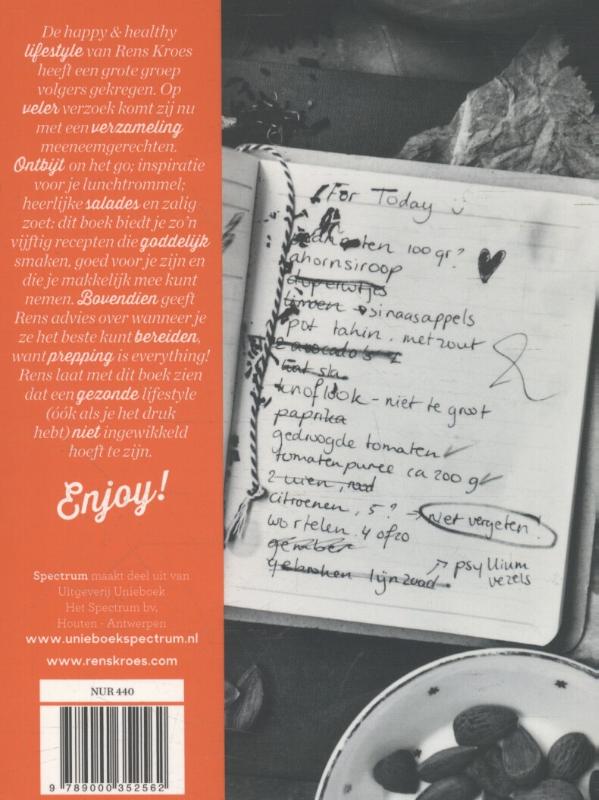 De happy & healthy
lifestyle van Rens Kroes
heeft een grote groep
volgers gekregen. Op
veler verzoek komt zij nu
met een verzameling
meeneemgerechten.
Ontbijt on het go; inspiratie
voor je lunchtrommel;
heerlijke salades en zalig
zoet: dit boek biedt je zo'n
vijftig recepten die goddelijk
smaken, goed voor je zijn en
die je makkelijk mee kunt
nemen. Bovendien geeft
Rens advies over wanneer je
ze het beste kunt bereiden,
want prepping is everything!
Rens laat met dit boek zien
dat een gezonde lifestyle
(óók als je het druk
hebt) niet ingewikkeld
hoeft te zijn.
Enjoy!
Spectrum maakt deel uit van
Uitgeverij Unieboek
Het Spectrum bv,
Houten - Antwerpen
www.unieboekspectrum.nl
www.renskroes.com
NUR 440
9 789000 352562
For Today
100 gr?
ahornsiroop
doperwtjes
limoen → sinaasappels
pot tahin. met zout
2 avocado's
knoflook - niet te groot
paprika
gedroogde tomaten
tomatenpuree ca 200 g
2 uien, rood
citroenen, 5? → niet vergeten!
wortelen. 4 of zo
gember
gebroken lijnzaad. → psyllium
vezels